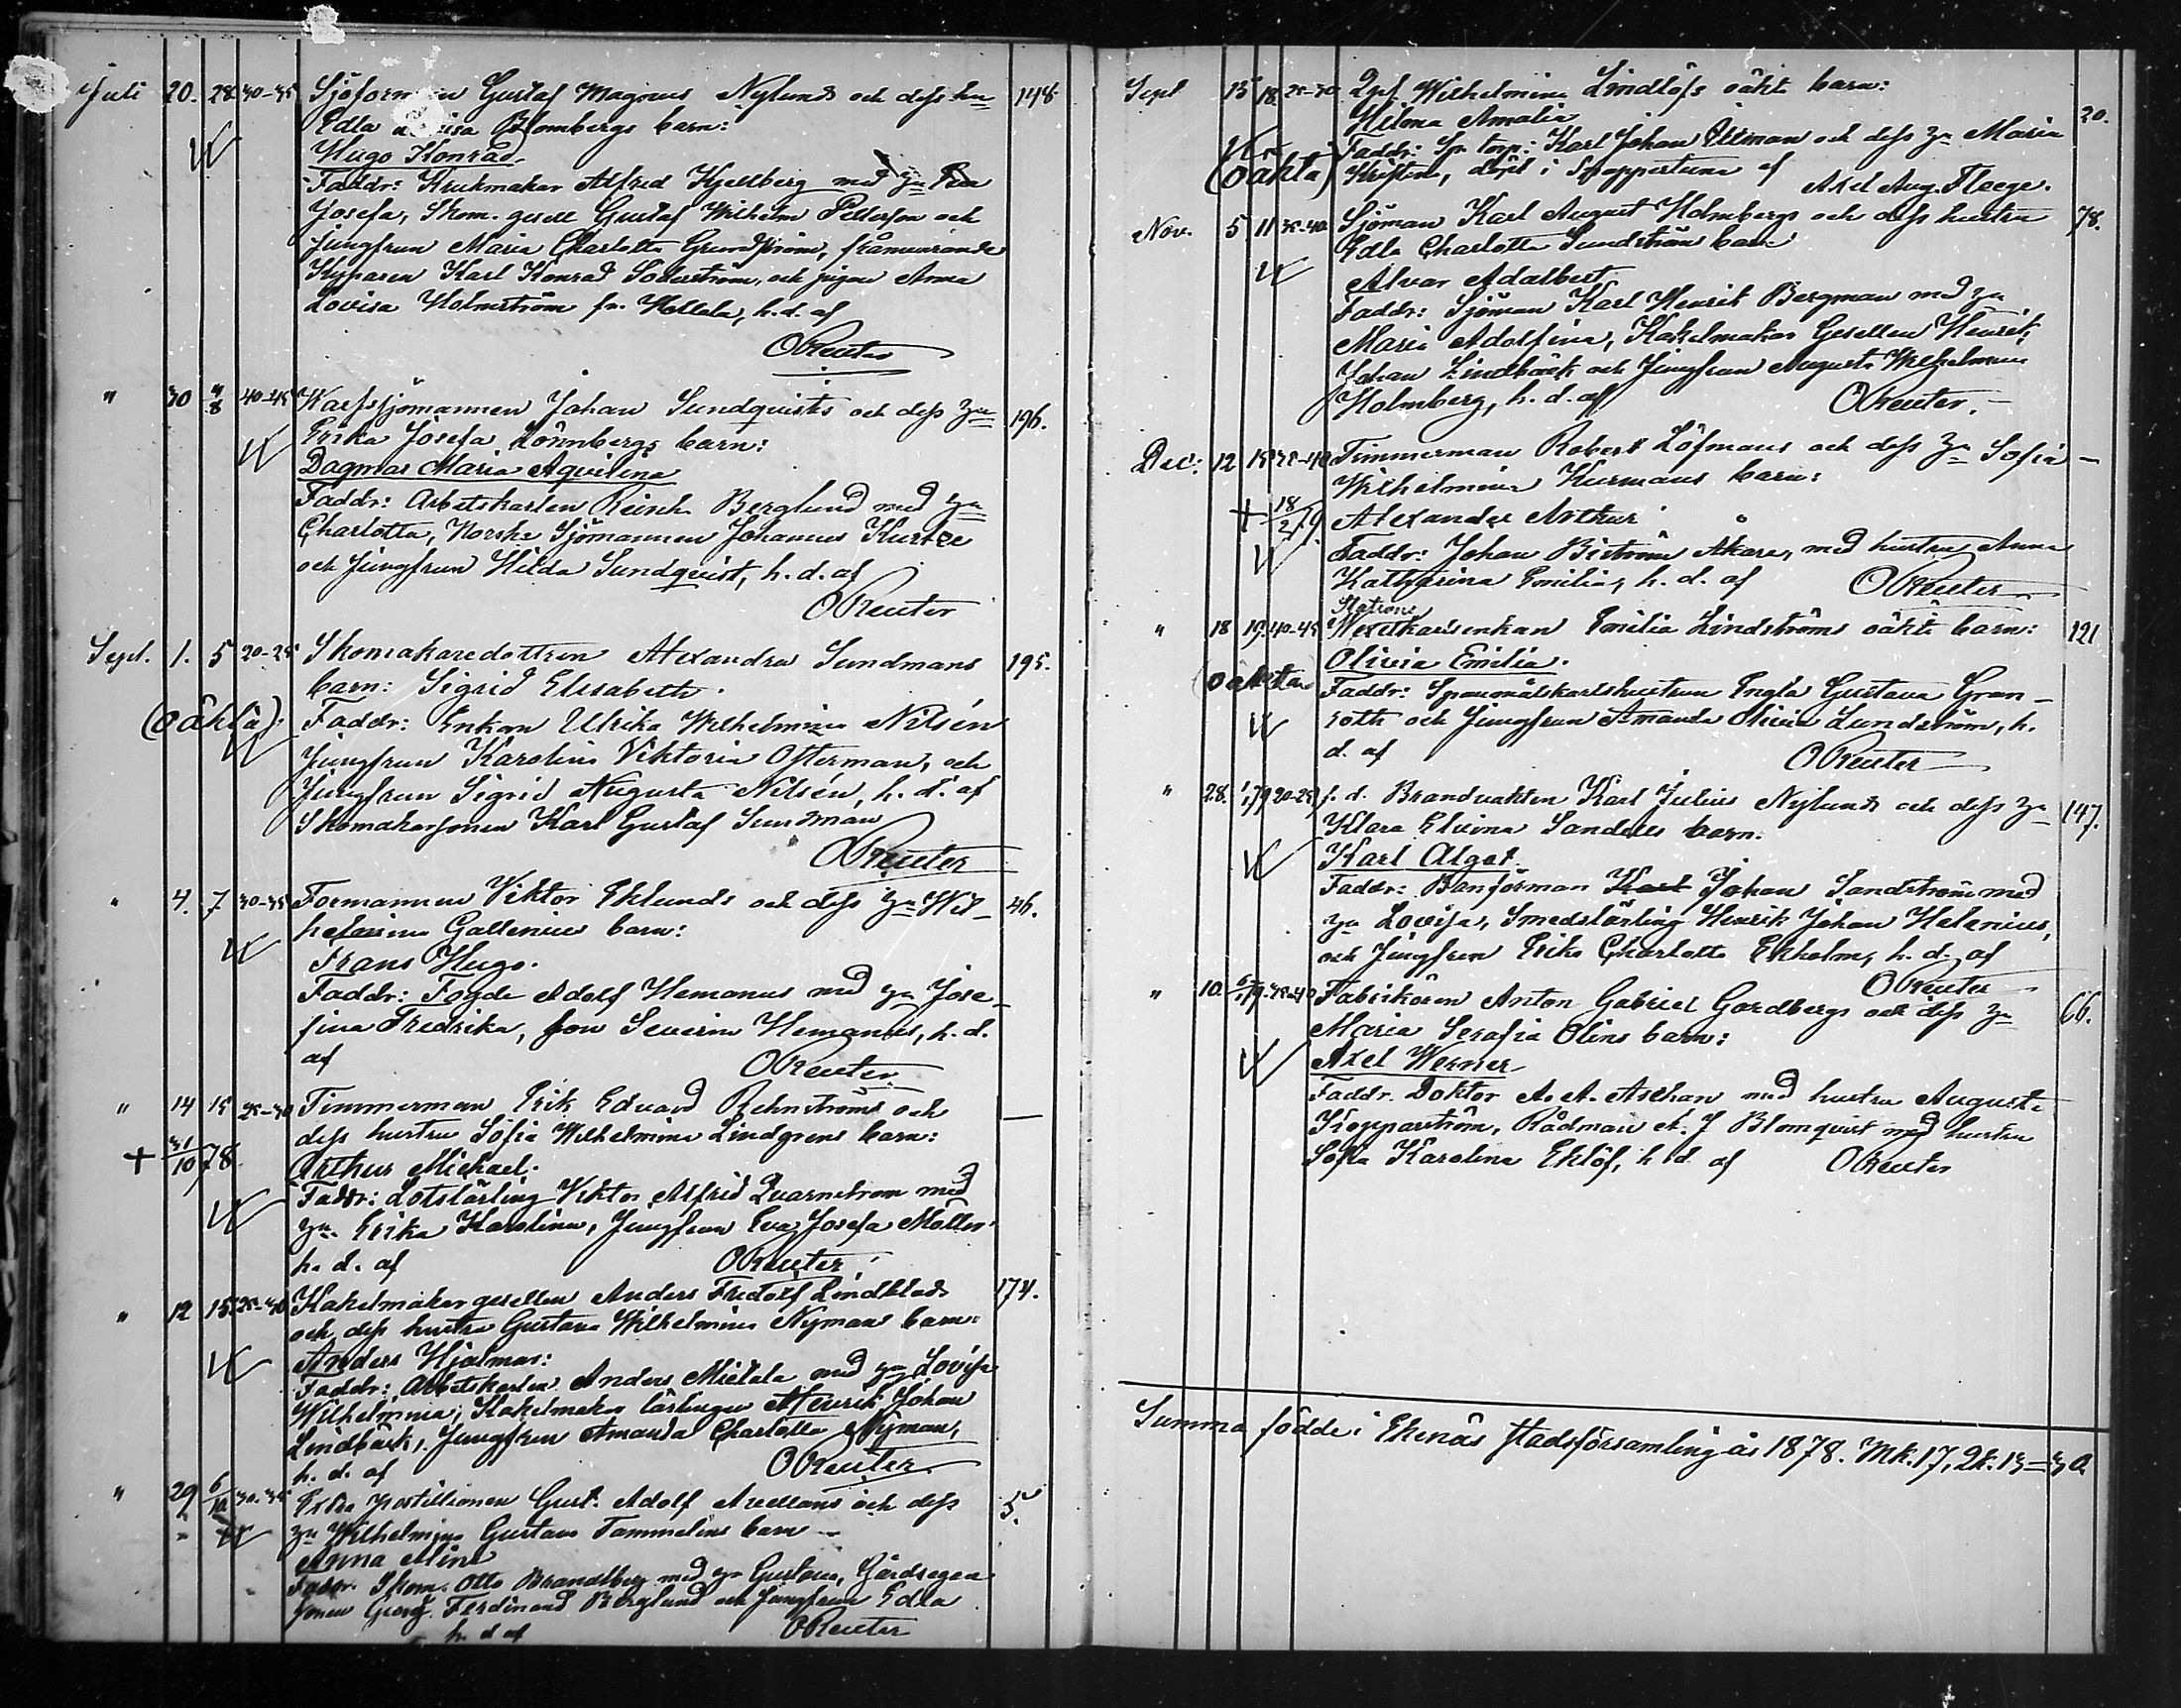 Juli 20. 28. 30-35 Sjöforman Gustaf Magnus Nylunds och dess hu 148
Edla Blombergs barn:
Hugo Konrad.
Faddr: Krukmakar Alfred Kjellberg med
Josefa, Skom. gesell Gustaf Wilhelm Petterson och
jungfrun Maria Charlotta Grundström, frånvarande
Kyparen Karl Konrad Söderström, och pigan Anna
Lovisa Holmström h. d. af
OReuter
" 30 4/8 40-45 Sjömannen Johan Sundqvists och dess 196.
Erika Josefa Lönnbergs barn:
Dagmar Maria Aqvilina
Faddr: Arbetskarlen Reinh. Berglund med
Charlotta, Norska Sjömannen Johannes
och Jungfrun Hilda Sundqvist, h. d. af
OReuter
Sept. 1. 5 20-25 Skomakaredottren Alexandra Sundmans 195.
barn: Sigrid Elisabeth.
(Oäkta) Faddr: Enkan Ulrika Wilhelmina Nilsén
Jungfrun Karolina Viktoria Osterman, och
Jungfrun Sigrid Augusta Nilsén, h. d. af
Skomakarsonen Karl Gustaf Sundman
OReuter
" 4. 7 30-35 Formannen Viktor Eklunds och dess Wil- 46.
helmina Gallenius barn:
Frans Hugo.
Faddr: Fogde Adolf Hemanus med Jose-
fina Fredrika, Severin Hemanus, h. d.
af OReuter
" 14 15 25-30 Timmerman Erik Edvard Rehnströms och —
dess hustru Sofia Wilhelmina Lindgrens barn:
+ 31/10 78 Arthur Michael.
Faddr: Lotslärling Viktor Alfrid Qvarnstrom med
Erika Karolina, Jungfrun Eva Josefa Möller
h. d. af OReuter
" 12 15 25-30 Kakelmakar gesellen Anders Fridolf Lindblads 174.
och dess hustru Gustava Wilhelmina Nymans barn:
Anders Hjalmar:
Faddr: Arbetskarlen Anders Mietala med Lovisa
Wilhelmina, Kakelmakar lärlingen Henrik Johan
Lindbäck, Jungfrun Amanda Charlotta Nyman,
h. d. af OReuter
" 29 6/10 30-35 Extra postillionen Gust. Adolf Avellans och dess 5.
Wilhelmina Gustava Tammelins barn
Anna Alina
Faddr. Skom. Otto Brandtberg med Gustava, Gårdsegare
sonen Georg Ferdinand Berglund och Jungfrun Edla
h. d. af OReuter
Sept 13 18. 25-30 Wilhelmina Lindlöfs oäkta barn: 20.
Hilma Amalia
Faddr: Karl Johan och dess Maria
(Oäkta) Kristina, döpt i Snappertuna af Axel Aug. Fleege.
Nov. 5 11 35-40 Sjöman Karl August Holmbergs och dess hustru 78.
Edla Charlotta Sundström barn
Alvar Adalbert
Faddr: Sjöman Karl Henrik Bergman med
Maria Adolfina, Kakelmakar Gesellen Henrik
Johan Lindbäck och Jungfrun Augusta Wilhelmina
Holmberg, h. d. af OReuter.
Dec. 12 15 35-40 Timmerman Robert Löfmans och dess Sofia —
Wilhelmina barn:
+ 18/2 79. Alexander Arthur
Faddr: Johan Biström Åkare, med hustru Anna
Katharina Emilia, h. d. af OReuter
Stations
" 18 19. 40-45 Wexelkarlsenkan Emilia Lindströms oäkta barn: 121
Olivia Emilia.
Oäkta Faddr: Spannmålskarlshustrun Engla Gustava Gran-
roth och Jungfrun Amanda Olivia Lundström, h.
d. af OReuter
" 28. 1/1 79 20-25 f. d. Brandvakten Karl Julius Nylunds och dess 147.
Klara Elvina Sandells barn.
Karl Algot.
Faddr: Banförman Karl Johan Sandström med
Lovisa, Smedslärling Henrik Johan Helenius,
och Jungfrun Erika Charlotta Ekholm, h. d. af
OReuter
" 10. 79. 35-40 Fabrikören Anton Gabriel Gardbergs och dess 66.
Maria Serafia Olins barn:
Axel Werner
Faddr. Doktor A. A. Aschan med hustru Augusta
Kopparström, Rådman A. J Blomqvist med hustru
Sofia Karolina Eklöf, h. d. af OReuter
Summa födde i Ekenäs Stadsförsamling år 1878. Mk. 17, Qk. 13 = 30.